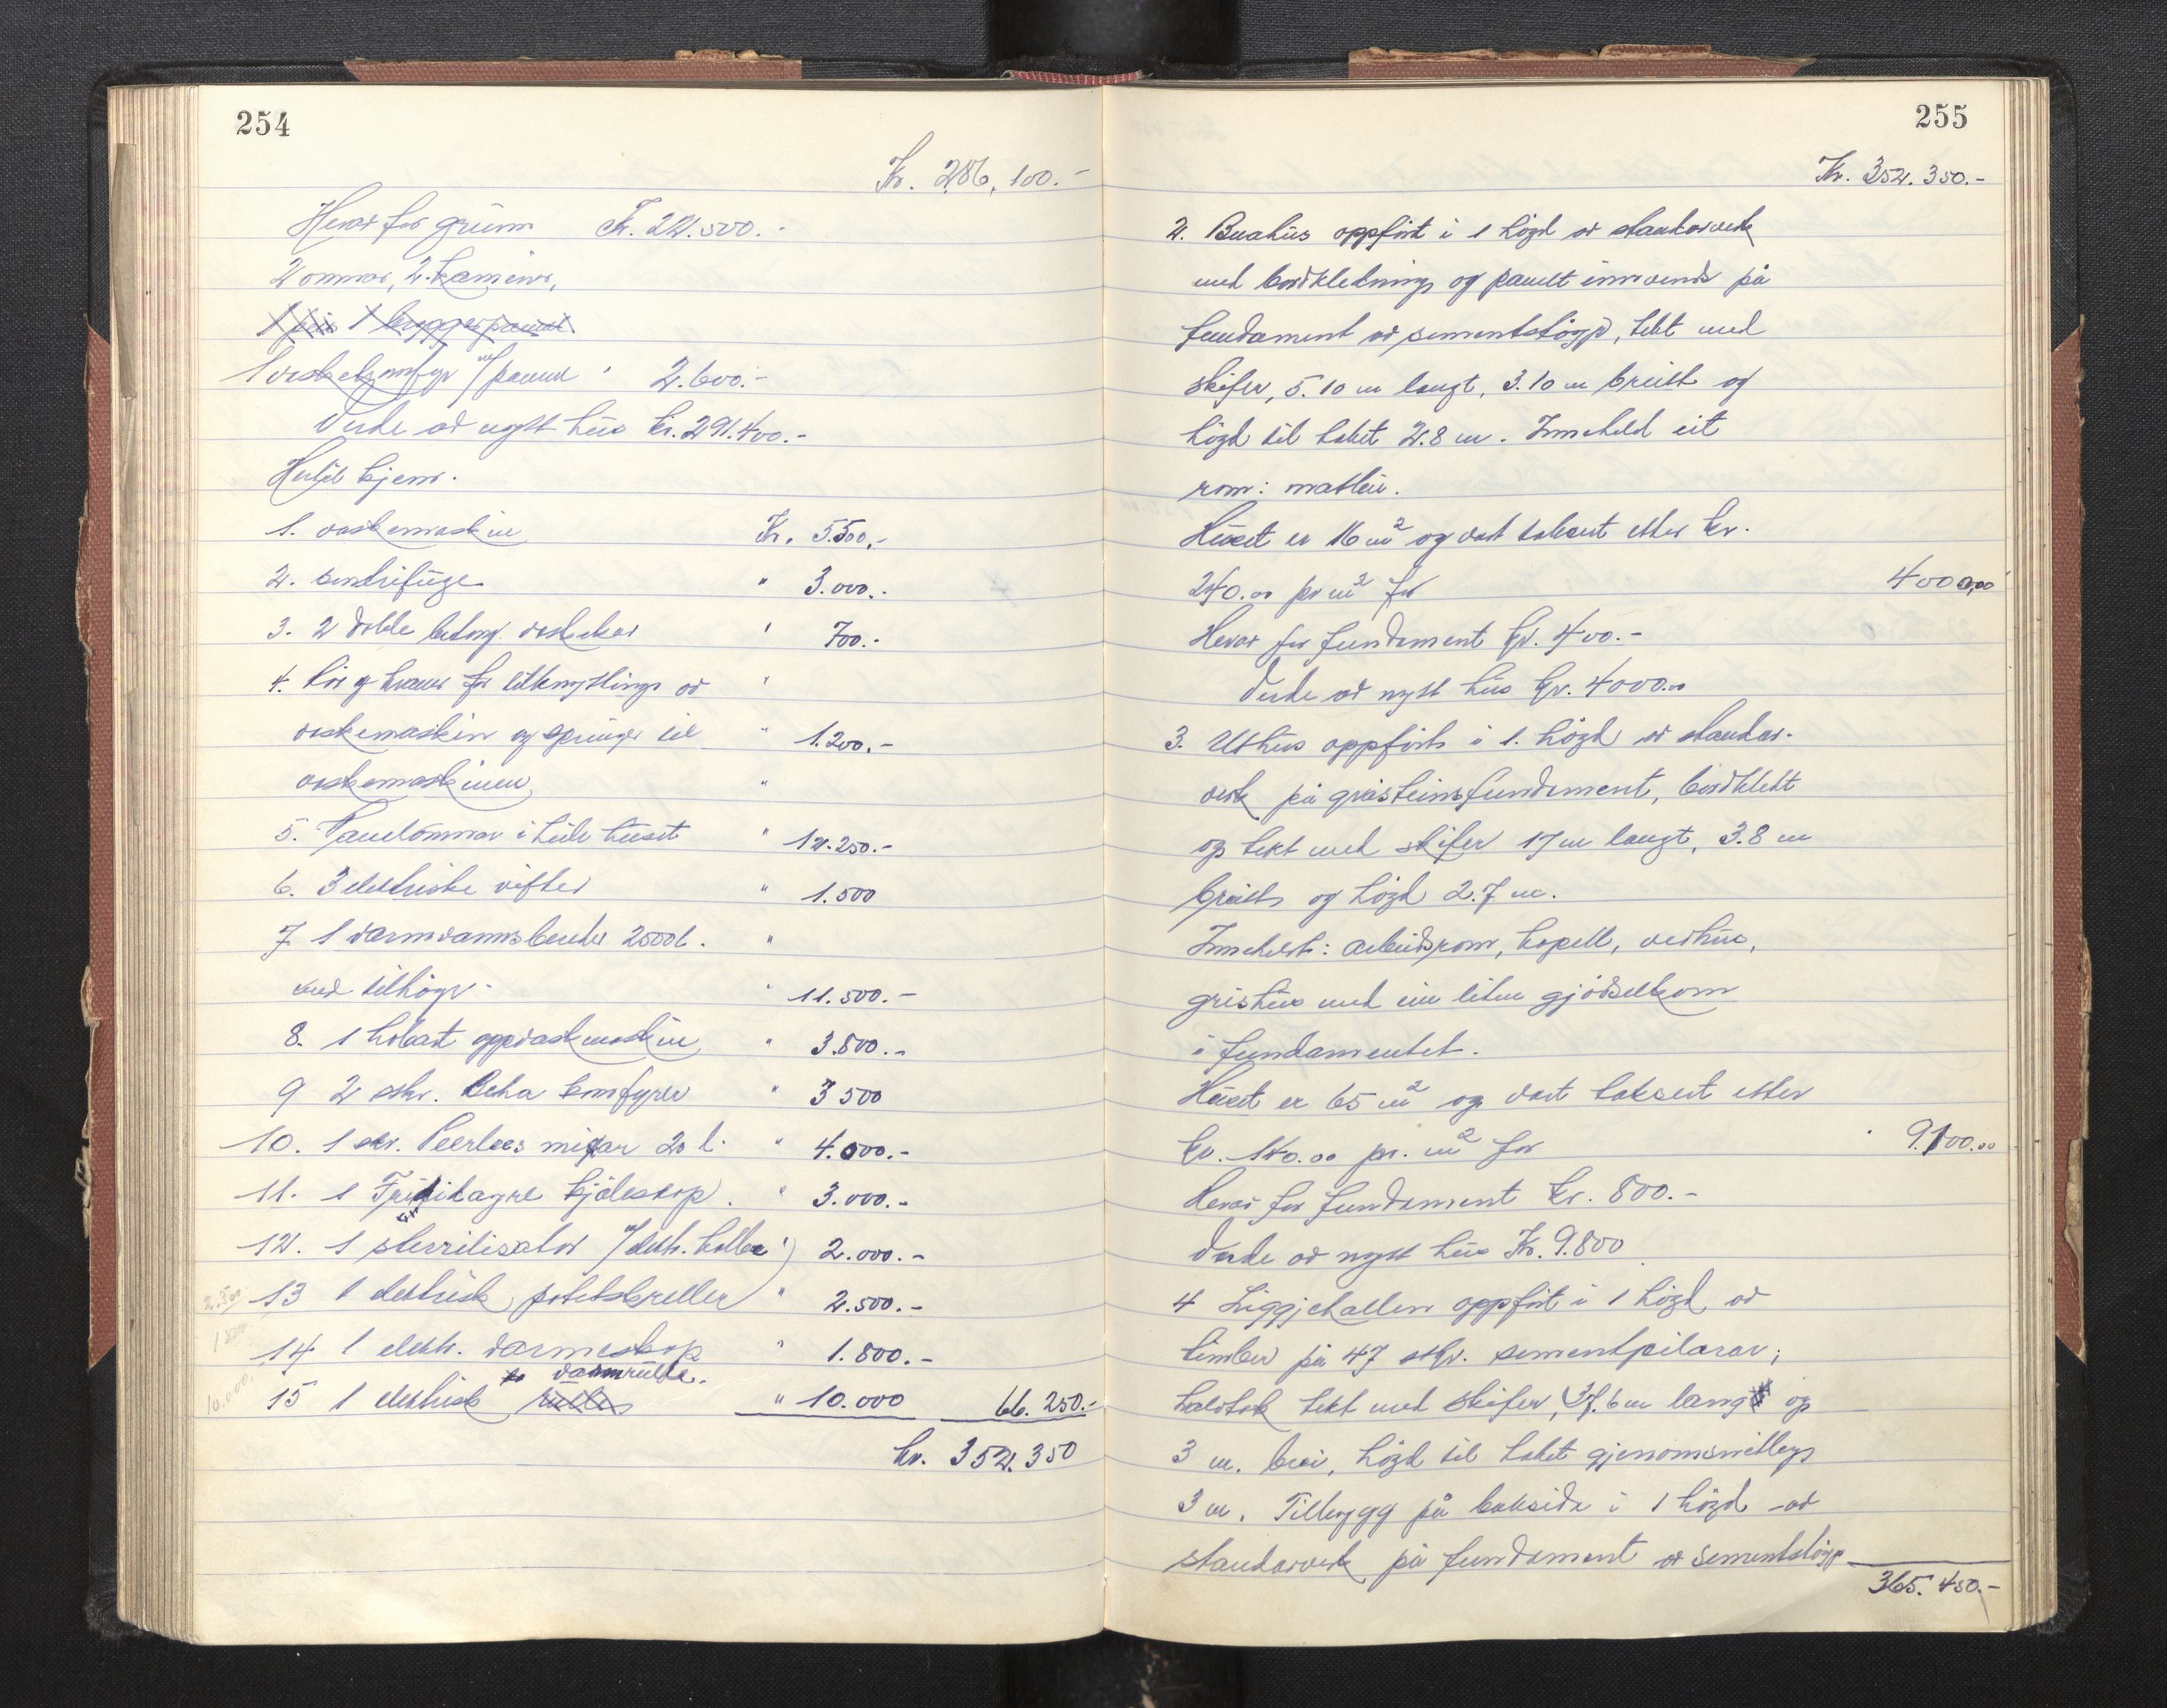 254
Kr. 286,100.-
Herav for grunn Kr. 22.500.-
2 omnar, 2 kaminar,
1 peis 1 bryggepanne
1 vedkomfyr m/panne " 2.600.-
Verde av nytt hus kr. 291.400.-
Hertil kjem.
1. vaskemaskin Kr. 5.500,-
2. sentrifuge " 3.000.-
3. 2 doble betong. vaskekar " 700.-
4. rör og kraner for tilknytting av "
vaskemaskin og springer til " 1.200,-
vaskemaskinen "
5. Panelomnar i heile huset " 12.250.-
6. 3 elektriske vifter " 1.500
7 1 varmvannsbereder 2500 l. "
med tilhöyr " 11.500.-
8. 1 hobart oppvaskmaskin " 3.800.-
9 2 stkr. Beha komfyrer " 3 500
10. 1 skr. Peerless mixar 20 l. " 4.000.-
11. 1 Frigidagre kjöleskap. " 3.000.-
12. 1 sterrilisator m/elektr. kolbe " 2.000.-
2.500 13 1 elektrisk potetskreller " 2.500.-
1800 14 1 elektr. varmeskap " 1.800.-
varmrulle.
10.000. 15 1 elektrisk rulle " 10.000 66.250.-
kr. 352.350
255
Kr. 352.350.-
2. Buahus oppfört i 1 högd av standarverk
med bordkledning og panelt innvendes på
fundament av sementstöyp, tekt med
skifer, 5.10 m langt, 3.10 m breitt og
högd til taket 2.8 m. Inneheld eit
rom: matbu.
Huset er 16 m² og vart taksert etter kr.
240.00 pr m² for 4000,00
Herav for fundament kr. 400.-
Verde av nytt hus kr. 4000.00
3. Uthus oppfört i 1. högd av standar-
verk på gråsteinsfundament, bordkledt
og tekt med skifer 17 m langt, 3.8 m
breitt og högd 2.7 m.
Inneheld: arbeidsrom, kapell, vedhus,
grishus med ein liten gjödselkom
i fundamentet.
Huset er 65 m² og vart taksert etter
kr. 140.00 pr. m² for " 9.100.00
Herav for fundament kr. 800.-
Verde av nytt hus Kr. 9.800
4 Liggjehallen oppfört i 1 högd av
timber på 47 stkr. sementpilarar;
halvtak tekt med skifer, 37.6 m lang og
3 m. brei, högd til taket gjenomsnittleg
3 m. Tilbygg på baksida i 1 högd av
standarverk på fundament av sementstöyp
365.450.-